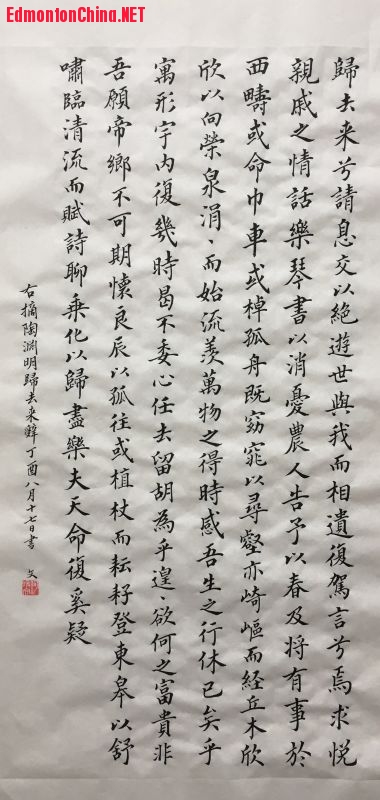 EdmontonChina.NET
歸去来兮請息交以絕遊世與我而相遺復駕言兮焉求悅
親戚之情話樂琴書以消憂農人告予以春及將有事於
西疇或命巾車或棹孤舟既窈窕以尋壑亦崎嶇而経丘木欣
欣以向榮泉涓、而始流羨萬物之得時感吾生之行休已矣乎
寓形宇内復幾時曷不委心任去留胡為乎遑、欲何之富貴非
吾願帝鄉不可期懷良辰以孤往或植杖而耘耔登東皋以舒
嘯臨清流而賦詩聊乗化以歸盡樂夫天命復奚疑
右摘陶淵明歸去来辭丁酉八月十七日書 文